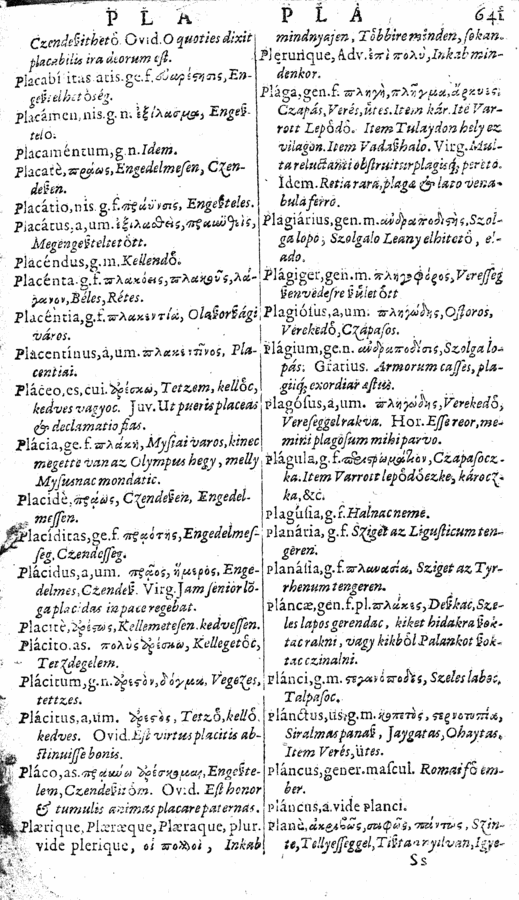 PLA PLA 641
Czendeſithetó. Ovid. O quoties dixit
placabilis ira deorum est.
Placabilitas atis. ge. f. En-
geſtelhetóség.
Placámen, nis. g. n. ἐξίλασμα, Engeſ-
telo.
Placaméntum, g. n. Idem.
Placatè, πράως, Engedelmeſen, Czen-
deſen.
Placátio, nis. g. f. πράϋνσις, Engeſteles.
Placátus, a, um.
Megengeſteltetótt.
Placéndus, g. m. Kellendó.
Placénta. g. f. πλακόεις, πλακοῦς, λά-
γανον, Béles, Rétes.
Placéntia, g. f. πλακεντία, Olaſorſági
város.
Placentínus, a, um. πλακεντῖνος, Pla-
centiai.
Pláceo, es, cui. ἀρέσκω, Tetzem, kellóc,
kedves vagyoc. Juv. Ut pueris placeas
& declamatio fias.
Plácia, ge. f. πλακίη, Myſiai varos, kinec
megette van az Olympus hegy, melly
Myſusnac mondatic.
Placidè, πράως, Czendeſen, Engedel-
meſſen.
Placíditas, ge. f. πραότης, Engedelmeſ-
ſeg, Czendeſſeg.
Plácidus, a, um. πρᾶος, ἥμερος, Enge-
delmes, Czendeſ. Virg. Jam ſenior lõ-
ga placidas in pace regebat.
Placitè, ἀρεστῶς, Kellemeteſen. kedveſſen.
Plácito. as. πολὺς ἀρέσκω, Kellegetóc,
Tetzdegelem.
Plácitum, g. n. ἀρεστὸν, δόγμα, Vegezes,
tettzes.
Plácitus, a, um. ἀρεστὸς, Tetzó, kelló.
kedves. Ovid. Eſt virtus placitis ab-
ſtinuiſſe bonis.
Pláco, as. Engeſte-
lem, Czendeſitóm. Ovid. Eſt honor
& tumulis animas placare paternas.
Plærique, Plæræque, Plæraque, plur.
vide plerique, οἱ πολλοὶ, Inkab
mindnyajen, Tóbbire minden, ſokan.
Plerurique, Adv. ἐπὶ πολὺ, Inkab min-
denkor.
Plága, gen. f. πληγὴ, πλῆγμα, ἄρκυς,
Czapás, Verés, útes. Item kár. Itē Var-
rott Lepódó. Item Tulaydon hely ez
vilagon. Item Vadaſhalo. Virg. Mul-
ta reluctanti obſtruitur plagisq́; pereto.
Idem. Retia rara, plagæ & lato vena-
bula ferro.
Plagiárius, gen. m. ἀνδραποδιστὴς, Szol-
ga lopo, Szolgalo Leany elhitetó, el-
ado.
Plágiger, gen. m. πληγοφόρος, Vereſſeg
ſenvedeſre
Plagióſus, a, um. πληγώδης, Oſtoros,
Verekedó, Czapaſos.
Plágium, ge. n. Szolga lo-
pás. Gratius. Armorum caſſes, pla-
giiq́; exordiar aſtus.
Plagóſus, a, um. πληγώδης, Verekedó,
Vereſeggel rakva. Hor. Eſſe reor, me-
mini plagoſum mihi parvo.
Plágula, g. f. Czapaſocz-
ka. Item Varrott lepódóezke, károcz-
ka, &c.
Plaguſia, g. f. Halnac neme.
Planária, g. f. Sziget az Liguſticum ten-
geren.
Planáſia, g. f. πλανασία, Sziget az Tyr-
rhenum tengeren.
Pláncæ, gen. f. pl. πλάκες, Deſkac, Sze-
les lapos gerendac, kiket hidakra ſok-
tac rakni, vagy kikból Palankot ſok-
tac czinalni.
Plánci, g. m. στεγανόποδες, Szeles laboc,
Talpaſoc.
Plánctus, us, g. m. κοπετὸς, στερνοτυπία,
Siralmas panaſ, Jaygatas, Ohaytas.
Item Verés, útes.
Pláncus, gener. maſcul. Romai fó em-
ber.
Pláncus, a. vide Planci.
Planè, ἀκριβῶς, σαφῶς, πάντως, Szin-
te, Tellyeſſeggel, Tiſtan nyilvan, Igye-
Ss